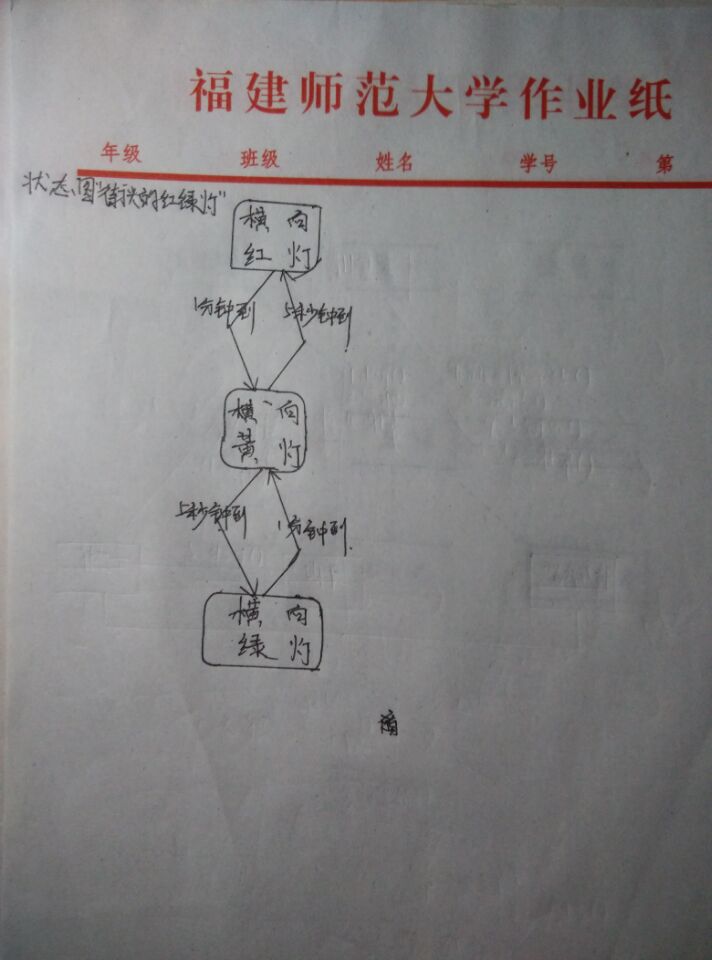 福建师范大学作业纸
年级 班级 姓名 学号 第
状态图"替换的红绿灯"
横向
红灯
1分钟到 5秒钟到
横向
黄灯
5秒钟到 1分钟到
横向
绿灯